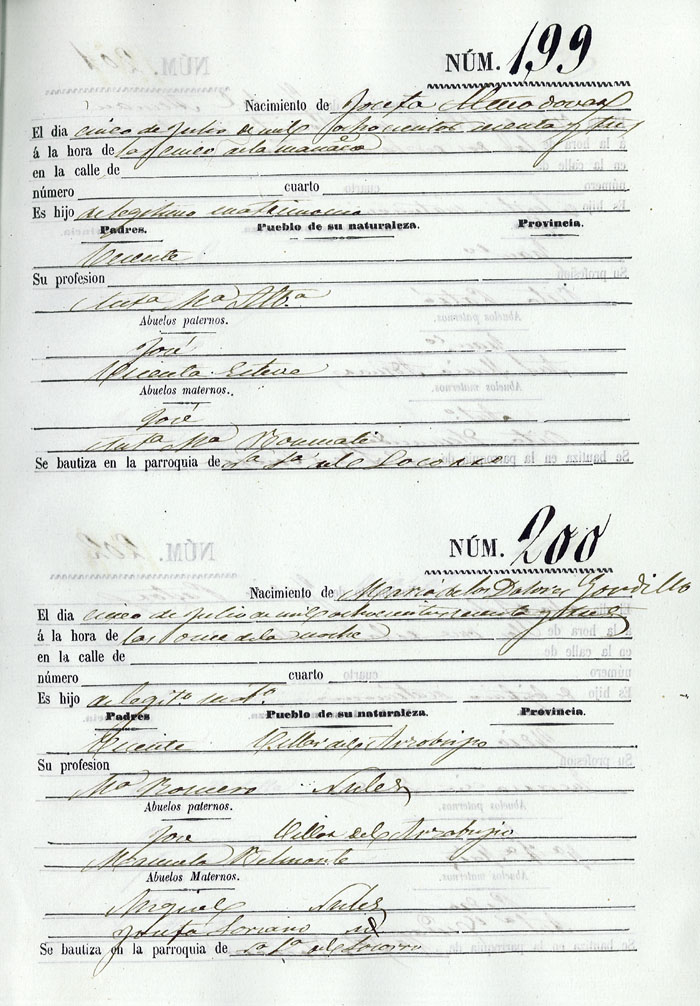 NÚM. 199
Nacimiento de Josefa Almodovar
El dia cinco de Julio de mil ochocientos sesenta y tres
á la hora de las cinco de la mañana
en la calle de
número cuarto
Es hijo de legitimo matrimonio
Padres. Pueblo de su naturaleza. Provincia.
Vicente
Su profesion
Anta Ma
Abuelos paternos.
José
Vicenta Esteve
Abuelos maternos.
José
Anta Ma
Se bautiza en la parroquia de Sa Sa del Socorro
NÚM. 200
Nacimiento de Maria de los Dolores Gordillo
El dia cinco de Julio de mil ochocientos sesenta y tres
á la hora de las once de la noche
en la calle de
número cuarto
Es hijo de legito mato
Padres Pueblo de su naturaleza. Provincia.
Vicente Villar del Arzobispo
Su profesion
Ma Romero Nules
Abuelos paternos.
José Villar del Arzobispo
Manuela Belmonte
Abuelos Maternos.
Miguel Nules
Josefa Soriano id
Se bautiza en la parroquia de Sa Sa del Socorro